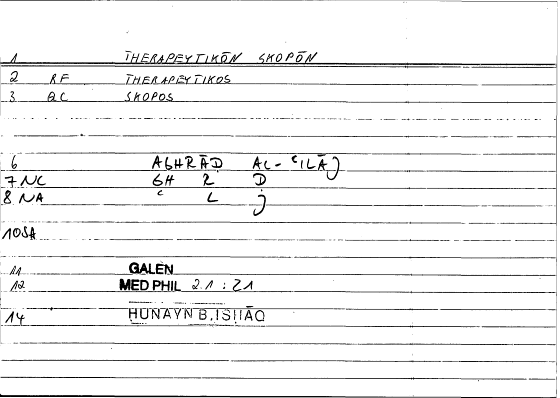 1 THERAPEYTIKŌN SKOPŌN
2 RF THERAPEYTIKOS
3 QC SKOPOS
6 AGHRĀD AL-ʿILĀJ
7 NC GH R D
8 NA ʿ L J
10SA
11 GALEN
12 MED PHIL 2.1 : 21
14 HUNAYN B.ISHAQ